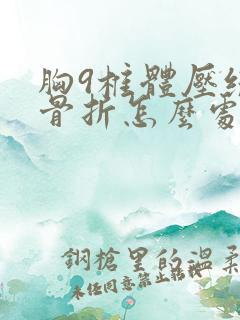 胸9椎體壓縮
骨折怎麼處
鋼槍里的溫柔
未经同意禁止转载